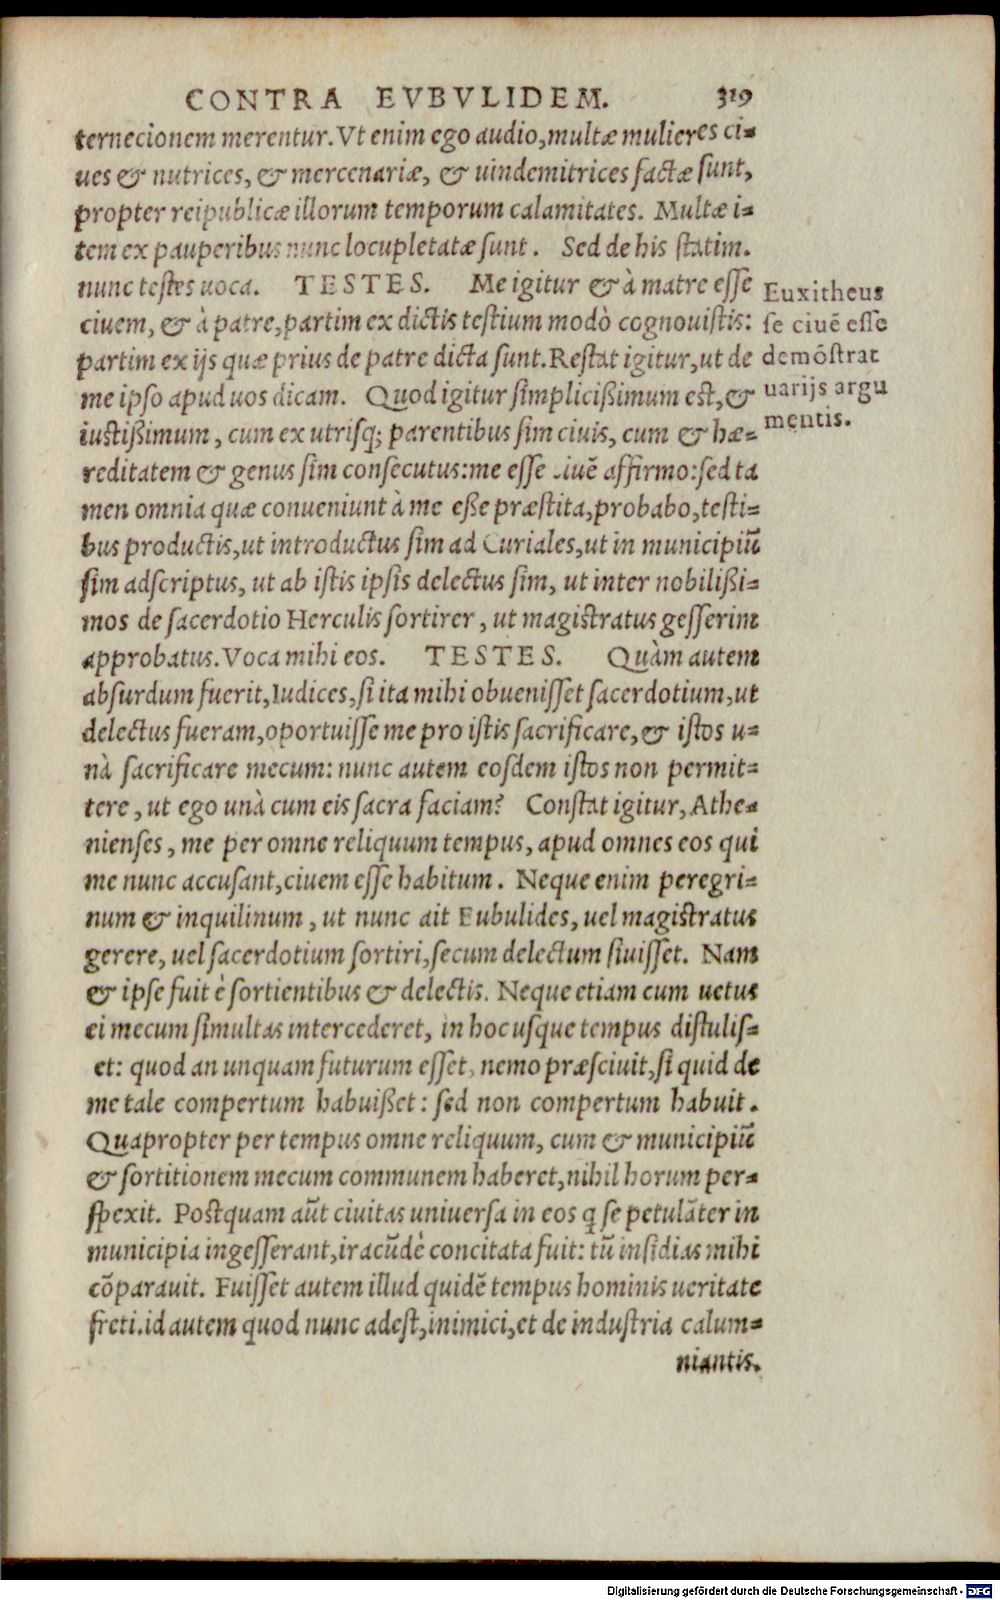 CONTRA EVBVLIDEM. 319
ternecionem merentur. Vt enim ego audio, multæ mulieres ci=
ues & nutrices, & mercenariæ, & uindemitrices factæ sunt,
propter reipublicæ illorum temporum calamitates. Multæ i=
tem ex pauperibus nunc locupletatæ sunt. Sed de his statim.
nunc testes uoca. TESTES. Me igitur & à matre esse
ciuem, & à patre, partim ex dictis testium modò cognouistis:
partim ex ijs quæ prius de patre dicta sunt. Restat igitur, ut de
me ipso apud uos dicam. Quod igitur simplicißimum est, &
iustißimum, cum ex utrisq; parentibus sim ciuis, cum & hæ=
reditatem & genus sim consecutus: me esse ciuē affirmo: sed ta
men omnia quæ conueniunt à me eße præstita, probabo, testi=
bus productis, ut introductus sim ad Curiales, ut in municipiū
sim adscriptus, ut ab istis ipsis delectus sim, ut inter nobilißi=
mos de sacerdotio Herculis sortirer, ut magistratus gesserim
approbatus. Voca mihi eos. TESTES. Quàm autem
absurdum fuerit, Iudices, si ita mihi obuenisset sacerdotium, ut
delectus fueram, oportuisse me pro istis sacrificare, & istos u=
nà sacrificare mecum: nunc autem eosdem istos non permit=
tere, ut ego unà cum eis sacra faciam? Constat igitur, Athe=
nienses, me per omne reliquum tempus, apud omnes eos qui
me nunc accusant, ciuem esse habitum. Neque enim peregri=
num & inquilinum, ut nunc ait Eubulides, uel magistratus
gerere, uel sacerdotium sortiri, secum delectum siuisset. Nam
& ipse fuit è sortientibus & delectis. Neque etiam cum uetus
ei mecum simultas intercederet, in hoc usque tempus distulis=
et: quod an unquam futurum esset, nemo præsciuit, si quid de
me tale compertum habuißet: sed non compertum habuit.
Quapropter per tempus omne reliquum, cum & municipiū
& sortitionem mecum communem haberet, nihil horum per=
spexit. Postquam aūt ciuitas uniuersa in eos q se petulāter in
municipia ingesserant, iracūdè concitata fuit: tū insidias mihi
cōparauit. Fuisset autem illud quidē tempus hominis ueritate
freti. id autem quod nunc adest, inimici, et de industria calum=
niantis.
Euxitheus
se ciuē esse
demōstrat
uarijs argu
mentis.
Digitalisierung gefördert durch die Deutsche Forschungsgemeinschaft - DFG